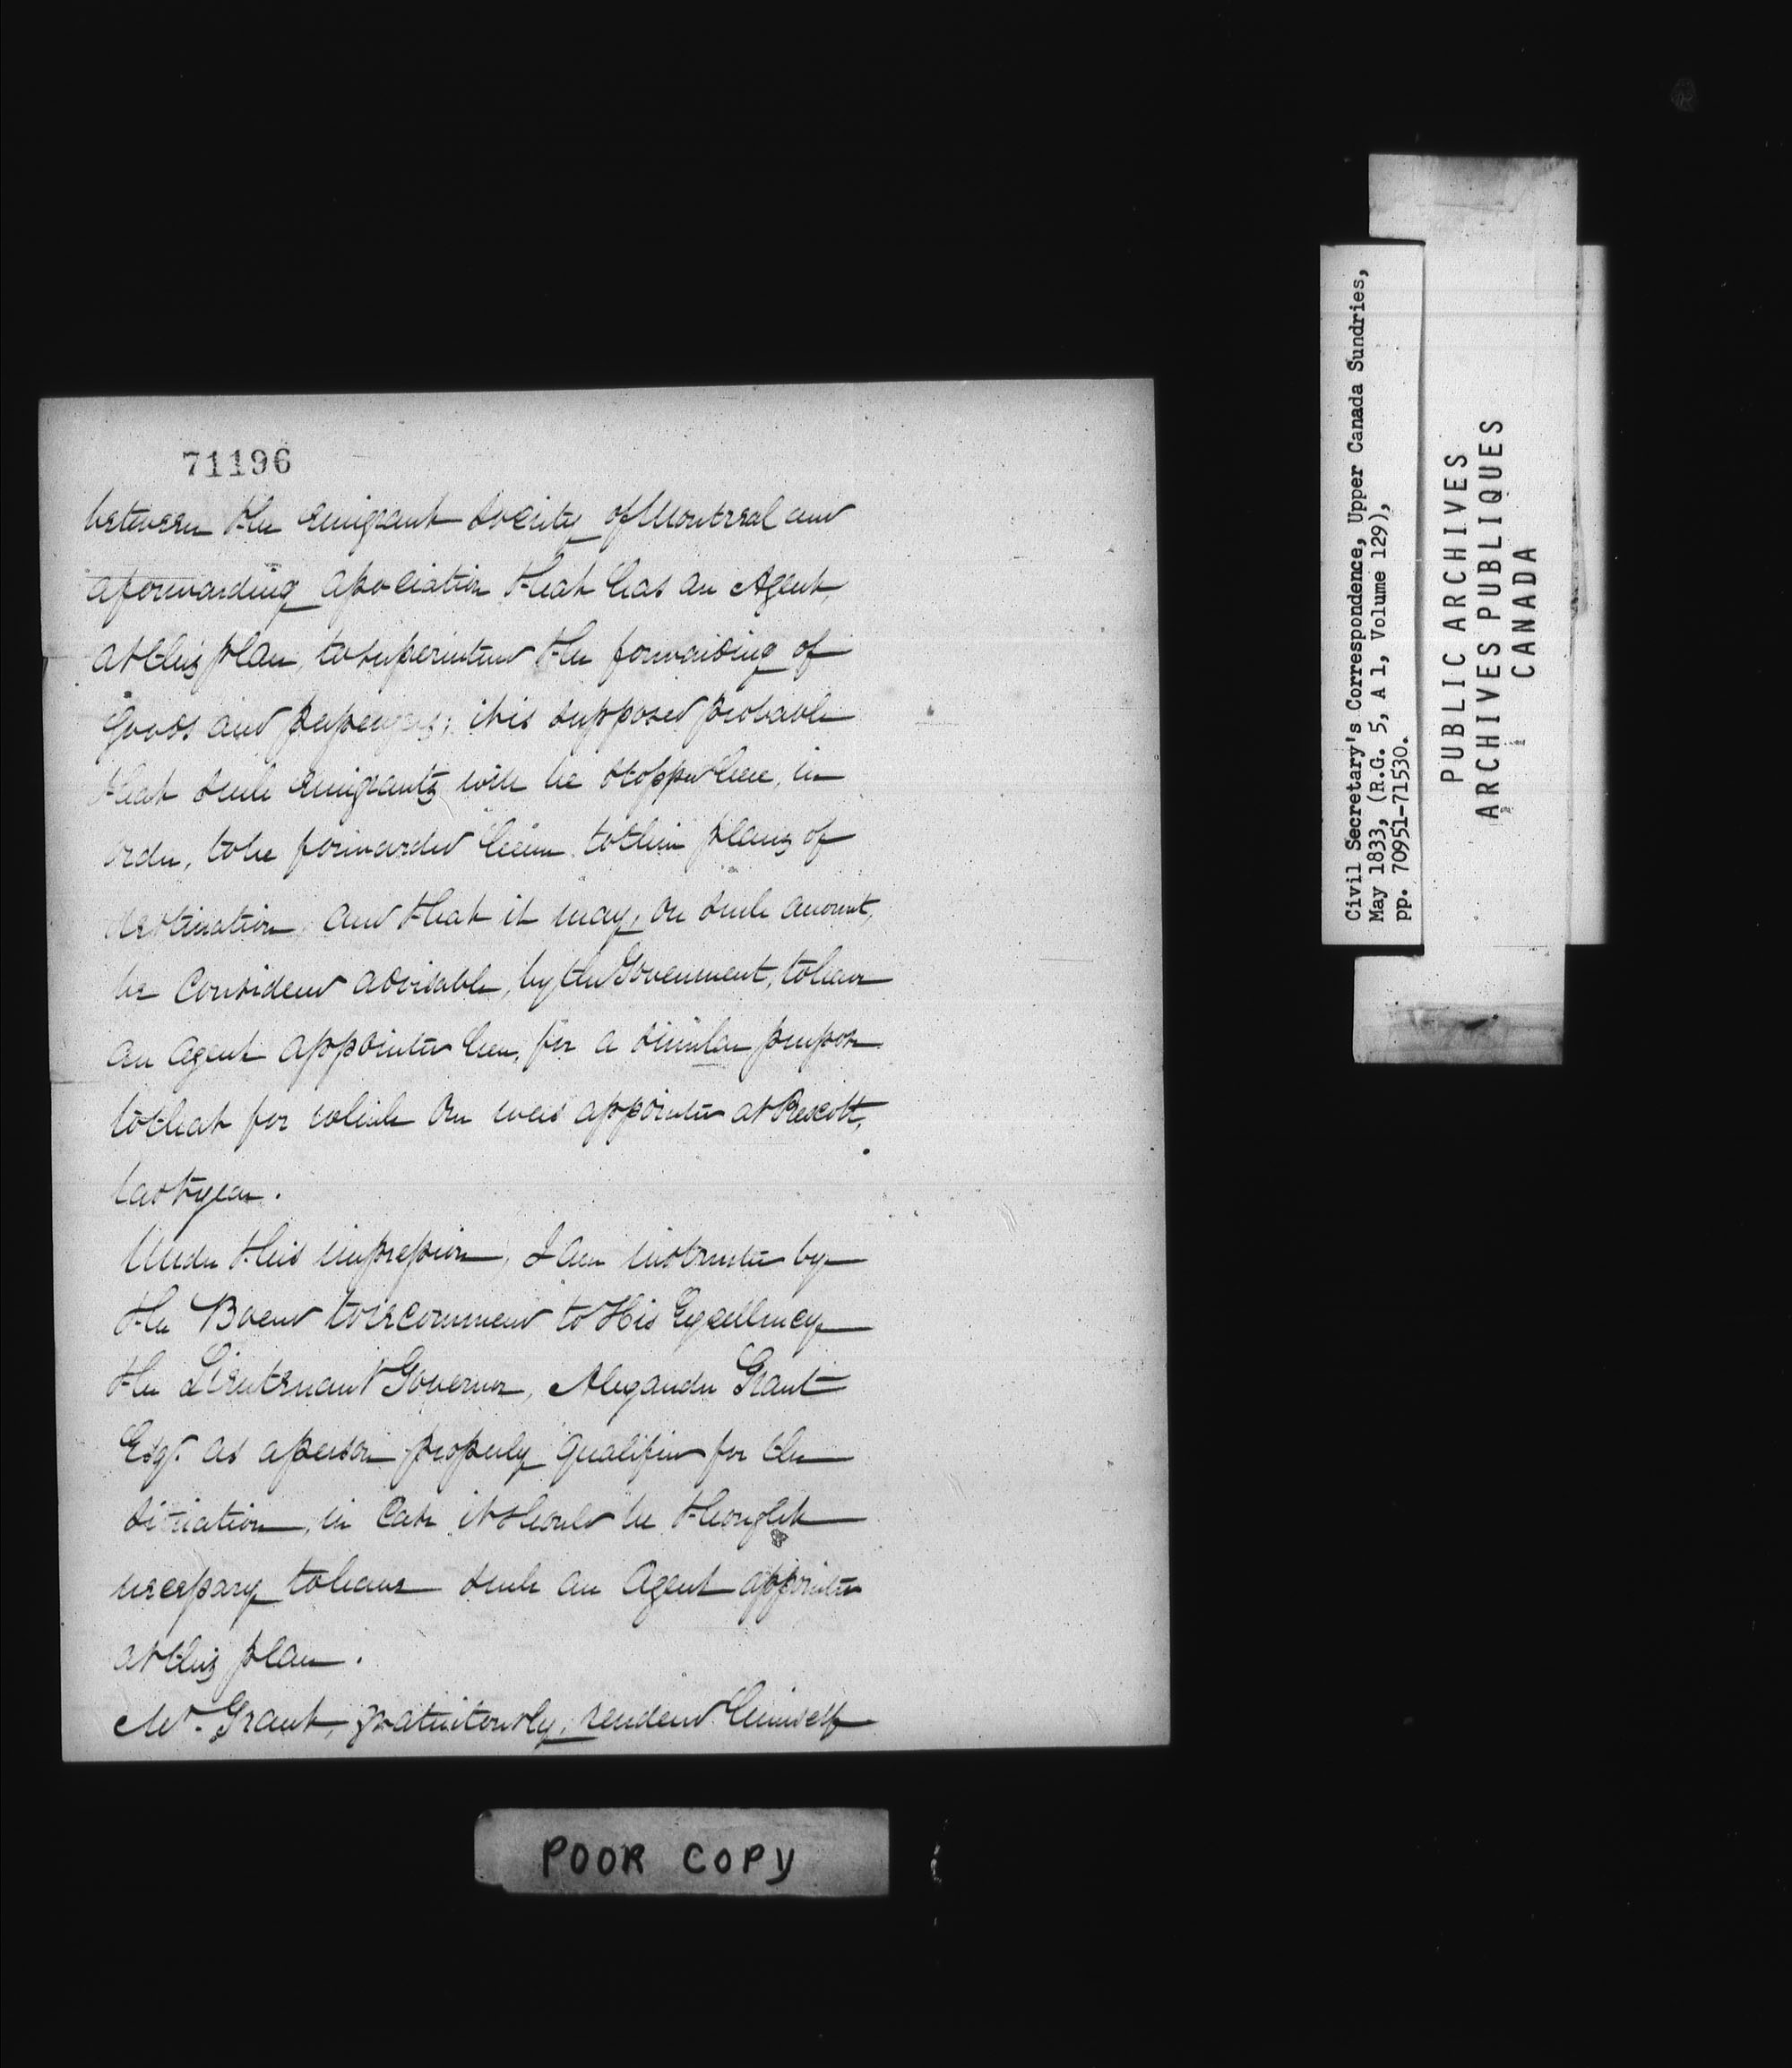 71196
between the emigrant Society of Montreal and
a forwarding association that has an Agent,
at this place, to superintend the forwarding of
goods and passengers; it is supposed probable
that such emigrants will be stopped here, in
order, to be forwarded hence to their places of
destination, and that it may, on such account,
be considered advisable, by the Government, to have
an agent appointed here, for a similar purpose
to that for which one was appointed at Prescott,
last year.
Under this impression, I am instructed by
the Board to recommend to His Excellency
the Lieutenant Governor, Alexander Grant
Esqr. as a person properly qualified for the
situation, in case it should be thought
necessary to have such an Agent appointed
at this place.
Mr. Grant, gratuitously, rendered himself
POOR COPY
Civil Secretary's Correspondence, Upper Canada Sundries,
May 1833, (R.G. 5, A 1, Volume 129),
pp. 70951-71530.
PUBLIC ARCHIVES
ARCHIVES PUBLIQUES
CANADA